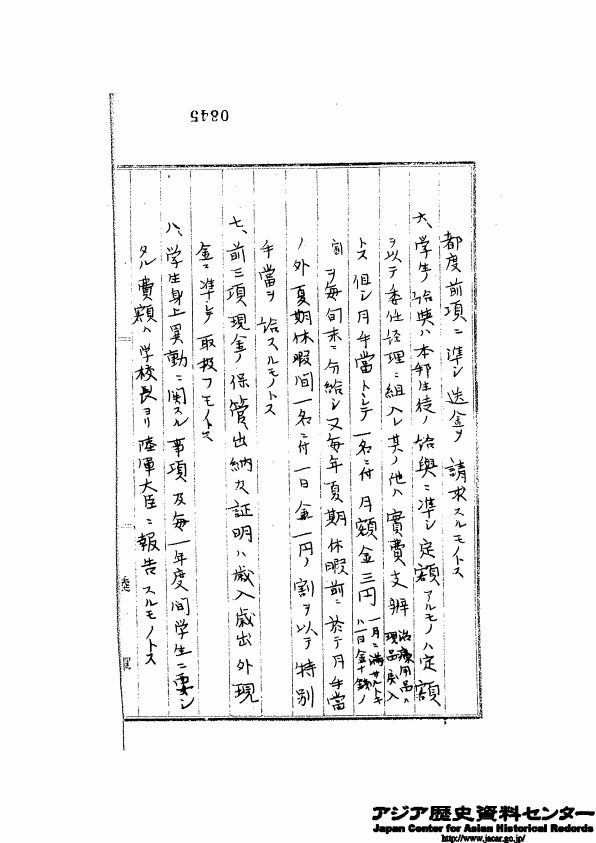 0845
都度前項ニ準シ送金ヲ請求スルモノトス
六、学生ノ給與ハ本邦生徒ノ給與ニ準シ定額アルモノハ定額
ヲ以テ委任経理ニ組入レ其ノ他ハ實費支辨 治療用品ハ 現品交入
トス但シ月手當トシテ一名ニ付月額金三円 一月ニ満サルトキ ハ一日金十銭ノ
割ヲ毎旬末ニ分給シ又毎年夏期休暇前ニ於テ月手當
ノ外夏期休暇間一名ニ付一日金一円ノ割ヲ以テ特別
手當ヲ給スルモノトス
七、前三項現金ノ保管出納及証明ハ歳入歳出外現
金ニ準シテ取扱フモノトス
八、学生身上異動ニ関スル事項及毎一年度間学生ニ要シ
タル費額ハ学校長ヨリ陸軍大臣ニ報告スルモノトス
陸軍
アジア歴史資料センター
Japan Center for Asian Historical Records
http://www.jacar.go.jp/